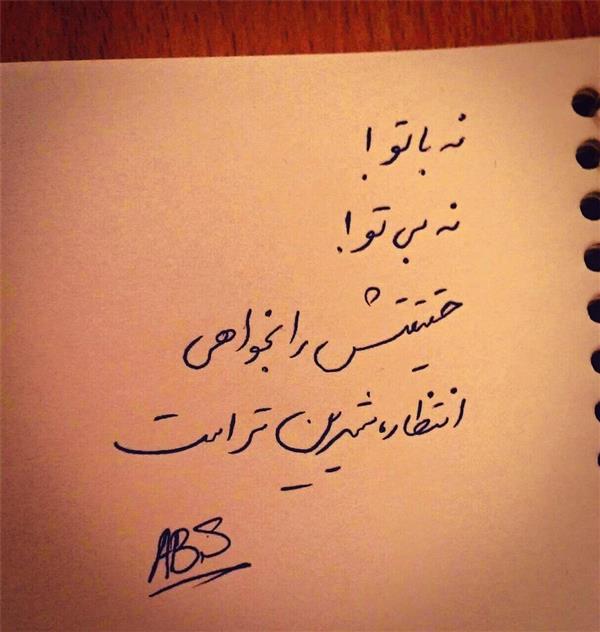 نه با تو !
نه بی تو !
حقیقتش را بخواهی
انتظار، شیرین تر است
ABS